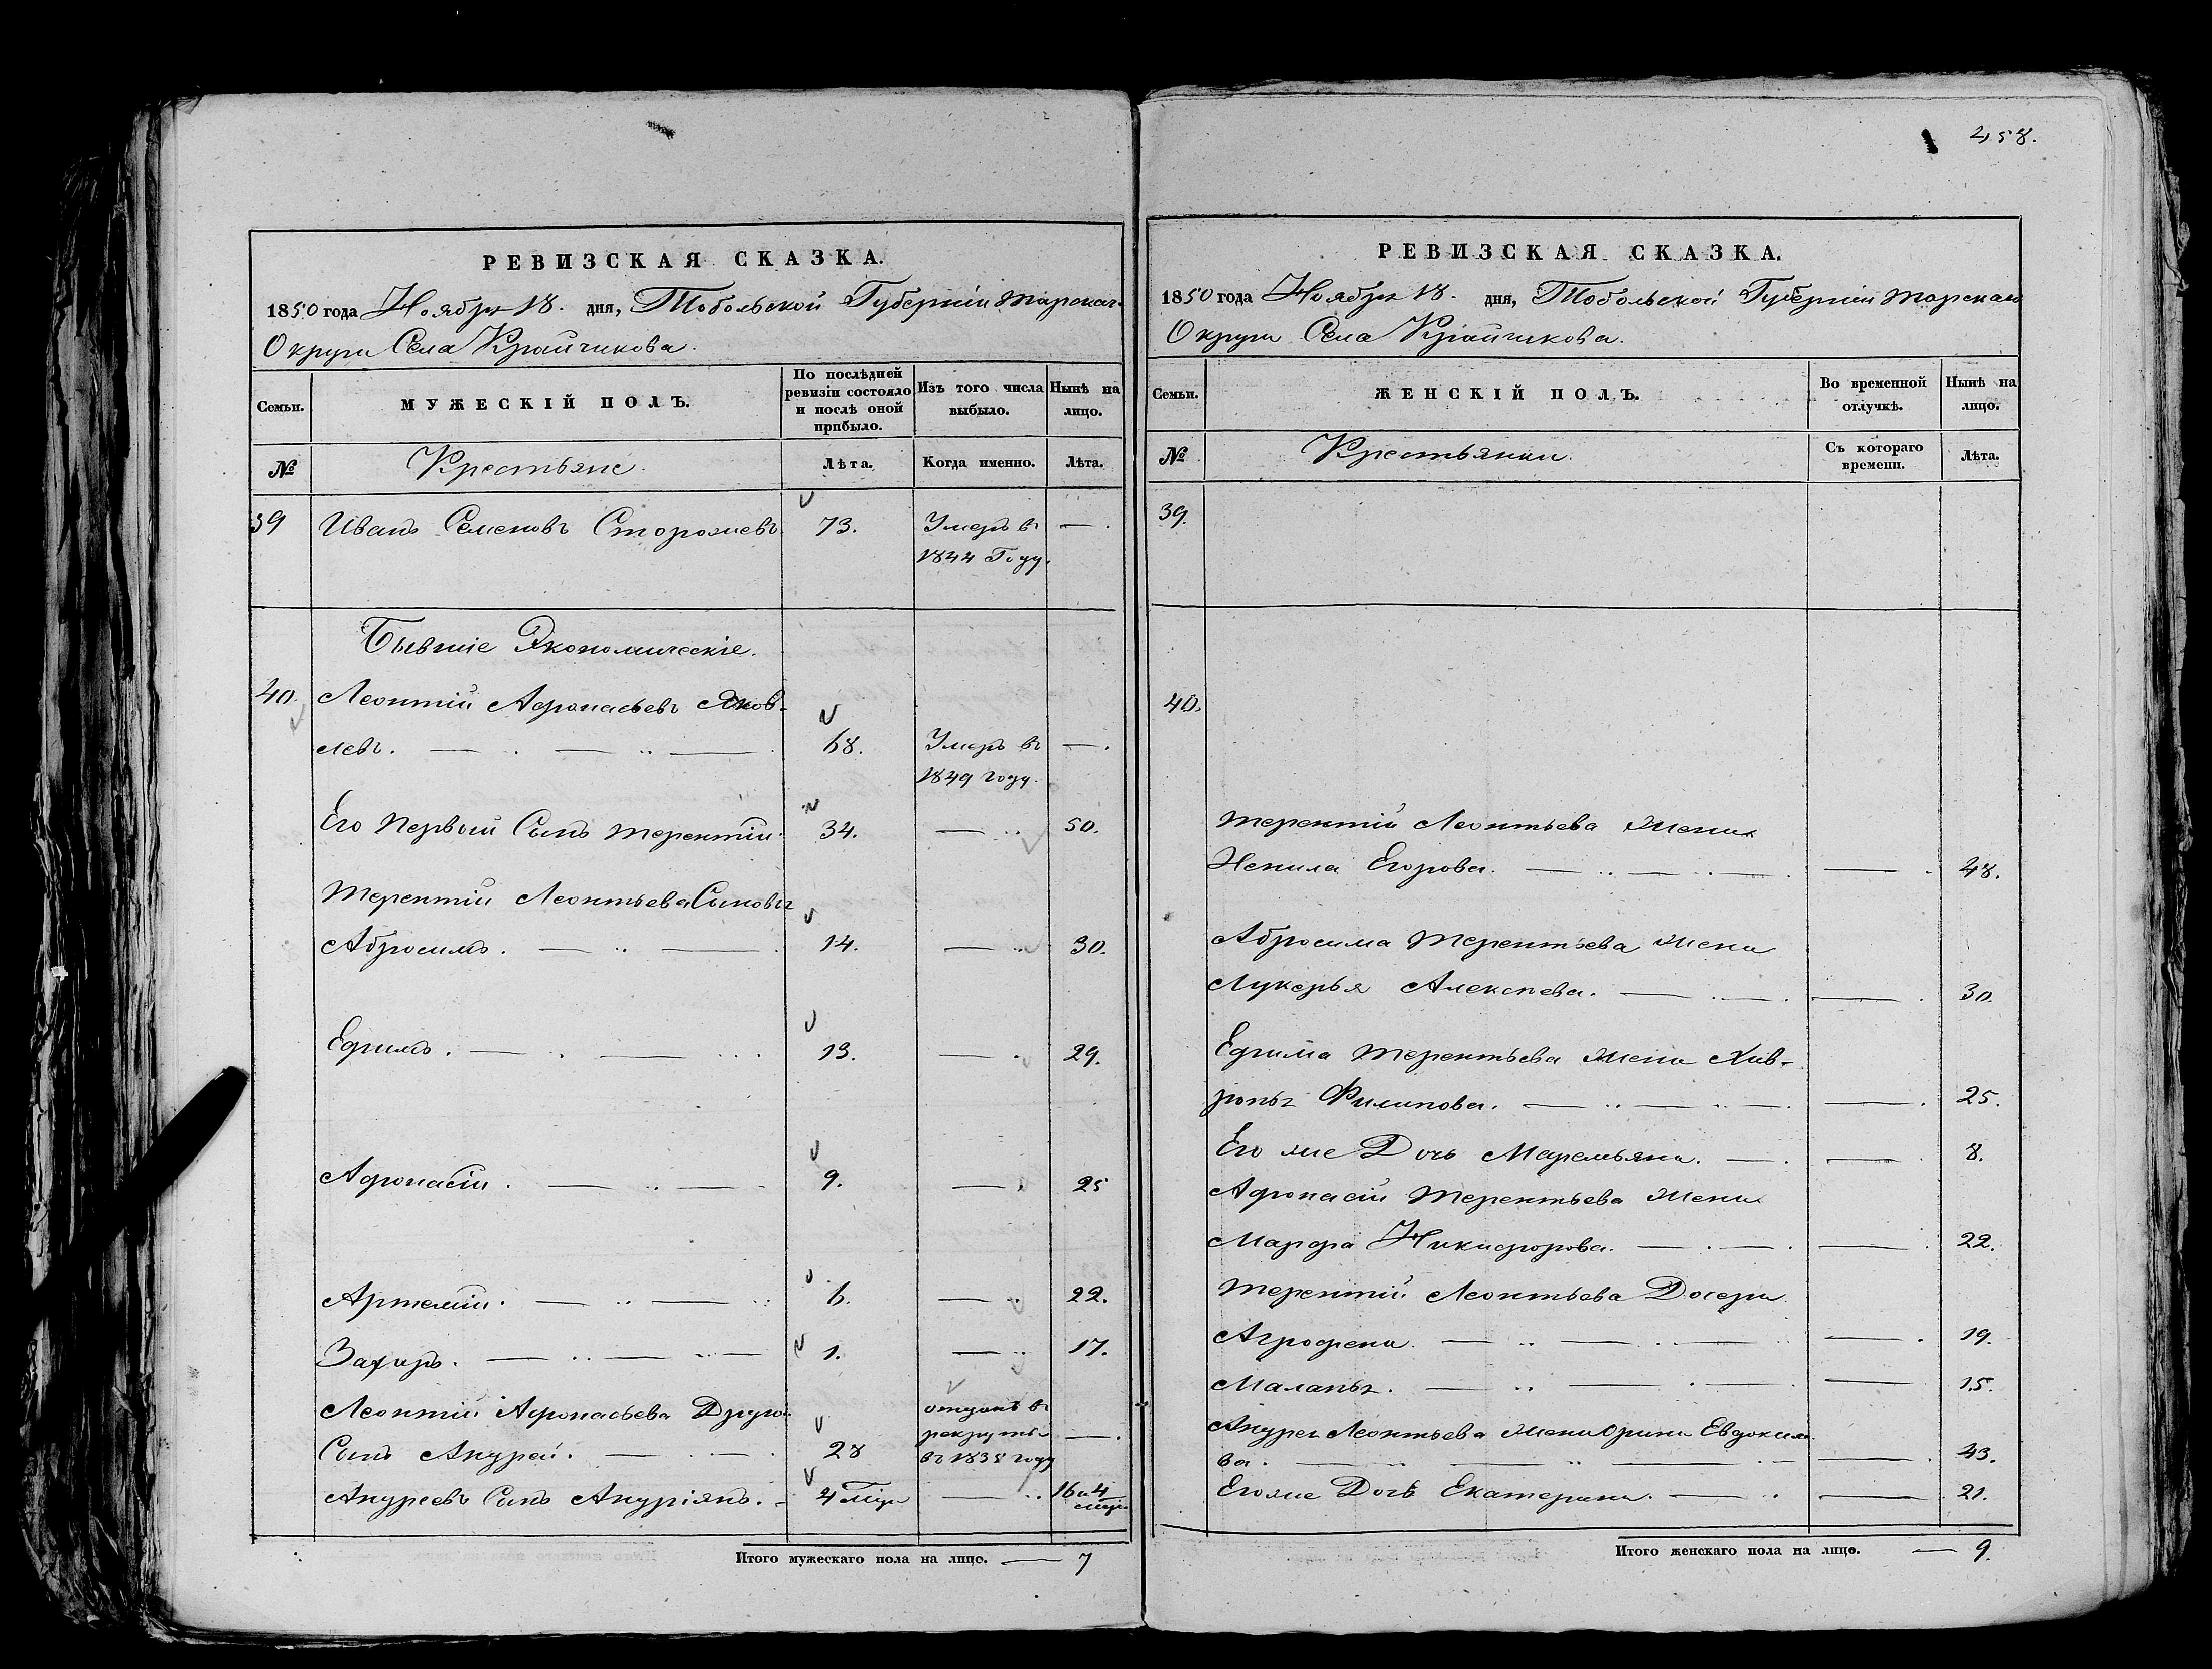 458.
РЕВИЗСКАЯ СКАЗКА.
1850 года Ноября 18. дня, Тобольской Губерніи Тарскаго
Округи Села Крайчикова.
Семьи. МУЖЕСКІЙ ПОЛЪ. По послѣдней ревизіи состояло и послѣ оной прибыло. Изъ того числа выбыло. Нынѣ на лицо.
№ Крестьяне. Лѣта. Когда именно. Лѣта.
39 Иванъ Семеновъ Сторожевъ 73. Умеръ въ — .
1844 Году.
Бывшіе Экономическіе.
40. Леонтій Афонасьевъ Яков-
левъ. 68. Умеръ въ — .
1849 году.
Его Первой Сынъ Терентій. 34. — 50.
Терентій Леонтьева Сыновья
Абросимъ. 14. — 30.
Ефимъ. 13. — 29.
Афонасій. 9. — 25
Артемій. 6. — 22.
Захаръ. 1. — 17.
Леонтій Афонасьева Другой отданъ въ
Сынъ Андрей. 28 рекруты — .
въ 1835 году
Андреевъ Сынъ Андріянъ. 4 мѣся — 16 и 4 меся
Итого мужескаго пола на лицо. — 7
РЕВИЗСКАЯ СКАЗКА.
1850 года Ноября 18. дня, Тобольской Губерніи Тарскаго
Округи Села Крайчикова.
Семьи. ЖЕНСКІЙ ПОЛЪ. Во временной отлучкѣ. Нынѣ на лицо.
№ Крестьянки. Съ котораго времени. Лѣта.
39.
40.
Терентій Леонтьева Жена
Ненила Егорова. — 48.
Абросима Терентьева Жена
Лукерья Алексеева. — 30.
Ефима Терентьева Жена Хав-
ронья Филипова. — 25.
Его же Дочь Маремьяна. — 8.
Афонасій Терентьева Жена
Марфа Никифорова. — 22.
Терентій Леонтьева Дочери
Аграфена — 19.
Маланья. — 15.
Андрея Леонтьева Жена Орина Евдокимо
ва. — 43.
Его же Дочь Екатерина. — 21.
Итого женскаго пола на лицо. — 9.